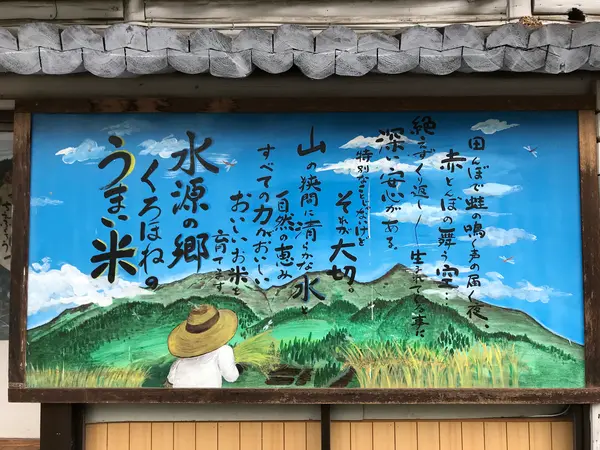 田んぼで蛙の鳴く声の届く夜、
赤とんぼの舞う空…
絶えずくり返し生まてきた
深い安心がある。
特別なことじゃないけど
それが大切。
山の狭間に清らかな水と
自然の恵み
すべての力がおいしい
おいしいお米を
育てます
水源の郷
くろほねの
うまい米